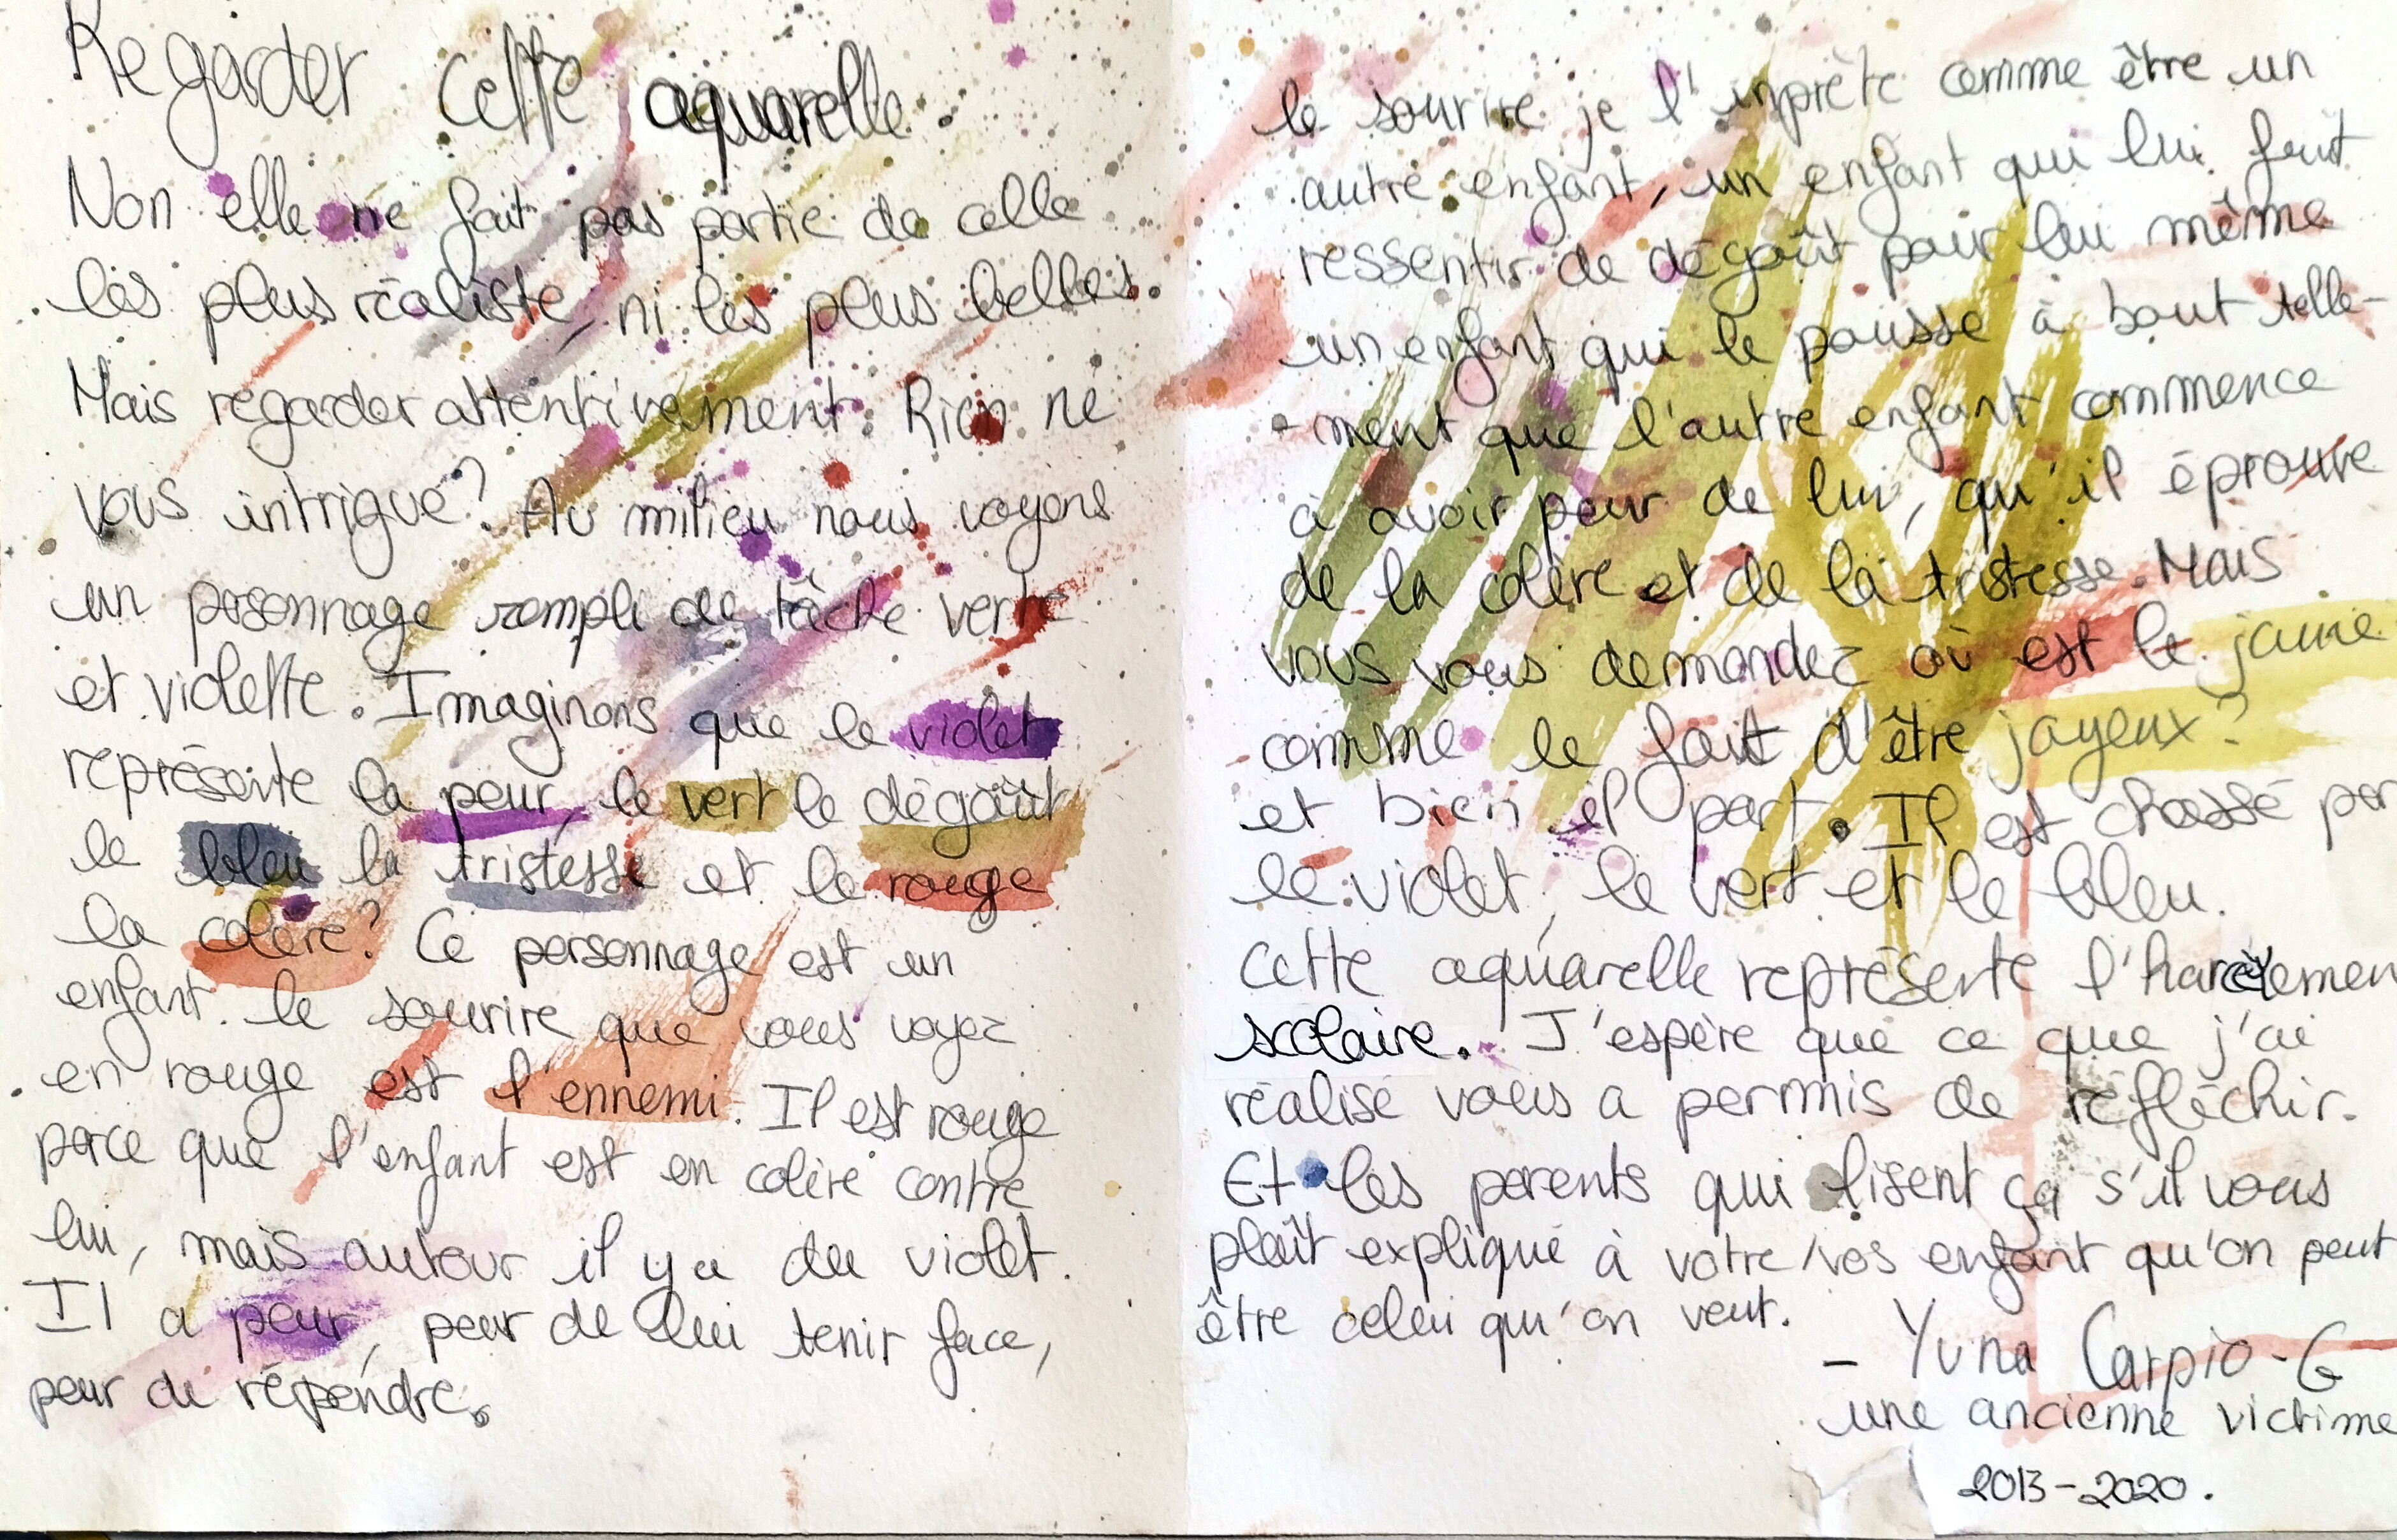 Regarder cette aquarelle.
Non elle ne fait pas partie de celle
les plus réaliste, ni les plus belles.
Mais regarder attentivement. Rien ne
vous intrigue? Au milieu nous voyons
un personnage rempli de tâche verte
et violette. Imaginons que le violet
représente la peur, le vert le dégoût
le bleu la tristesse et le rouge
la colère? Ce personnage est un
enfant. le sourire que vous voyez
en rouge est l'ennemi. Il est rouge
parce que l'enfant est en colère contre
lui, mais autour il y a du violet.
Il a peur, peur de lui tenir face,
peur de répendre.
le sourire je l'inprète comme être un
autre enfant, un enfant qui lui fait
ressentir de dégoût pour lui même
un enfant qui le pousse à bout telle-
-ment que l'autre enfant commence
à avoir peur de lui, qu'il éprouve
de la colère et de la tristesse. Mais
vous vous demandez où est le jaune
comme le fait d'être joyeux?
et bien il part. Il est chassé par
le violet, le vert et le bleu.
Cette aquarelle représente l'harcèlemen
scolaire. J'espère que ce que j'ai
réalisé vous a permis de réfléchir.
Et les parents qui lisent ça s'il vous
plaît expliqué à votre/vos enfant qu'on peut
être celui qu'on veut.
- Yuna Carpio-G
une ancienne victime
2013-2020.